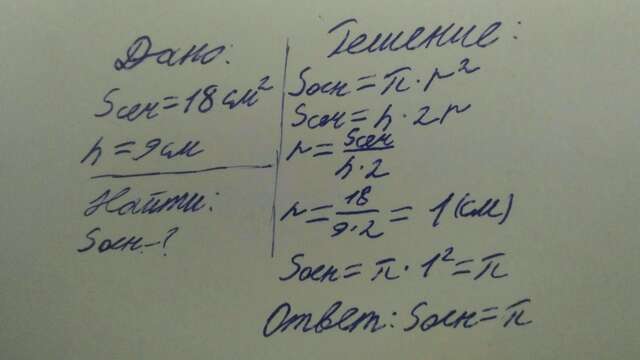 Дано:
Sсеч=18см²
h=9см
Найти:
Sосн-?
Решение:
Sосн=π·r²
Sсеч=h·2r
r=Sсеч/h·2
r=18/9·2=1(см)
Sосн=π·1²=π
Ответ: Sосн=π